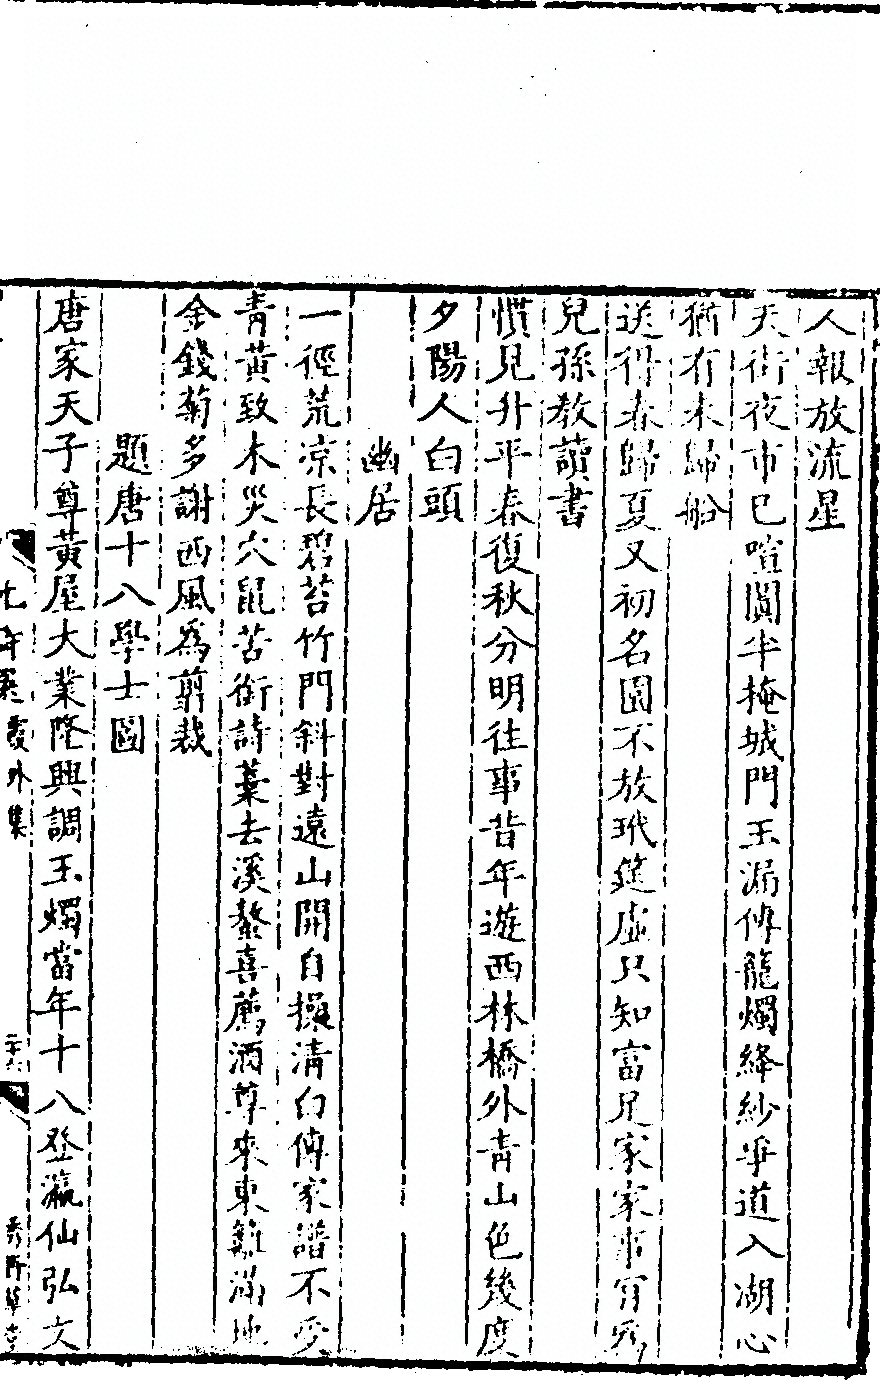 人報放流星
天街夜市已喧闐半掩城門玉漏傳龍燭絳紗爭道入湖心
猶有未歸船
送得春歸夏又初名園不放玳筵虛只知富足家家事
兒孫教讀書
慣見升平春復秋分明往事昔年遊西林橋外青山色幾度
夕陽人白頭
幽居
一徑荒凉長碧苔竹門斜對遠山開自操清白傳家譜不受
青黃致木災穴鼠苦銜詩藁去溪鰲喜薦酒尊來東籬滿地
金錢菊多謝西風為剪裁
題唐十八學士圖
唐家天子尊黃屋大業隆興調玉燭當年十八登瀛仙弘文
霞外集
二十六
秀野草堂